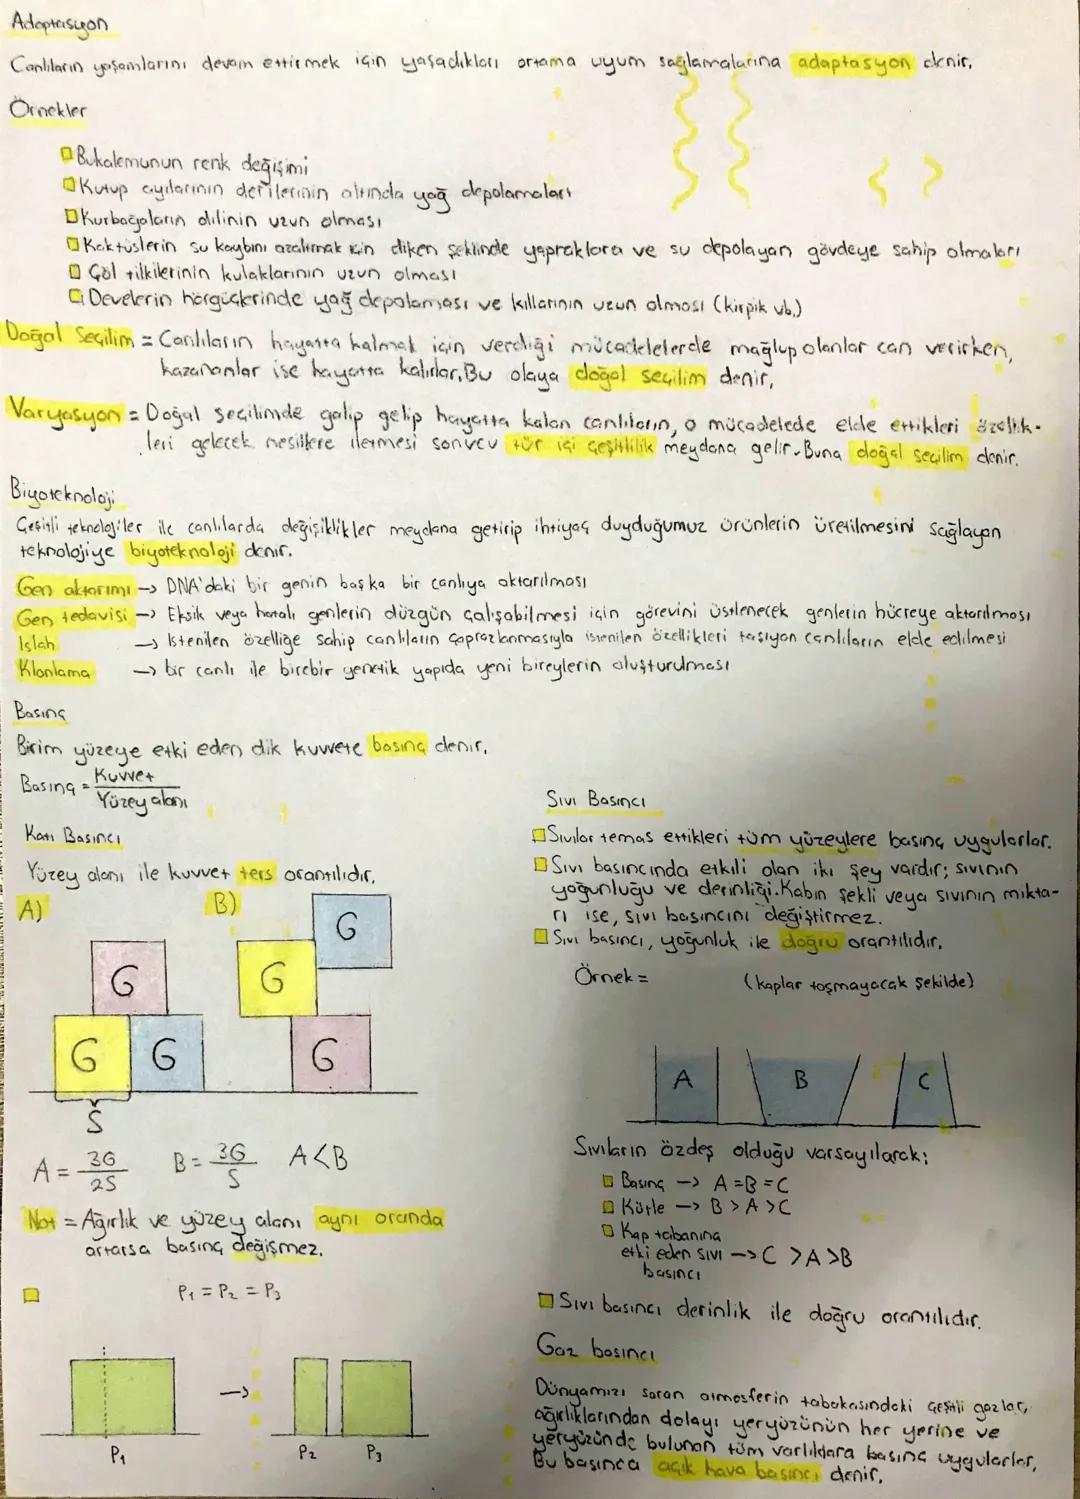 Adaptasyon
Canlıların yaşamlarını devam ettirmek için yaşadıkları ortama uyum sağlamalarına adaptasyon denir.
Örnekler
Bukalemunun renk değişimi
Kutup ayılarının derilerinin altında yağ depolamaları
Kurbağaların dilinin uzun olması
Kaktüslerin su kaybını azaltmak için diken şeklinde yapraklara ve su depolayan gövdeye sahip olmaları
Çöl tilkilerinin kulaklarının uzun olması
Develerin hörgüçlerinde yağ depolaması ve kıllarının uzun olması (kirpik vb.)
Doğal Seçilim = Canlıların hayatta kalmak için verdiği mücadelelerde mağlup olanlar can verirken,
kazananlar ise hayatta kalırlar. Bu olaya doğal seçilim denir.
Varyasyon = Doğal seçilimde galip gelip hayatta kalan canlıların, o mücadelede elde ettikleri özellik-
leri gelecek nesillere iletmesi sonucu tür içi çeşitlilik meydana gelir. Buna doğal seçilim denir.
Biyoteknoloji
Çeşitli teknolojiler ile canlılarda değişiklikler meydana getirip ihtiyaç duyduğumuz ürünlerin üretilmesini sağlayan
teknolojiye biyoteknoloji denir.
Gen aktarımı → DNA'daki bir genin başka bir canlıya aktarılması
Gen tedavisi → Eksik veya hatalı genlerin düzgün çalışabilmesi için görevini üstlenecek genlerin hücreye aktarılması
Islah → İstenilen özelliğe sahip canlıların çaprazlanmasıyla istenilen özellikleri taşıyan canlıların elde edilmesi
Klonlama → bir canlı ile birebir genetik yapıda yeni bireylerin oluşturulması
Basınç
Birim yüzeye etki eden dik kuvvete basınç denir.
Basınç = Kuvvet / Yüzey alanı
Katı Basıncı
Yüzey alanı ile kuvvet ters orantılıdır.
A) B)
G
G
G
G G G
S
A = 3G/2S B = 3G/S A<B
Not = Ağırlık ve yüzey alanı aynı oranda
artarsa basınç değişmez.
P1 = P2 = P3
→
P1 P2 P3
Sıvı Basıncı
Sıvılar temas ettikleri tüm yüzeylere basınç uygularlar.
Sıvı basıncında etkili olan iki şey vardır; sıvının
yoğunluğu ve derinliği. Kabın şekli veya sıvının mikta-
rı ise, sıvı basıncını değiştirmez.
Sıvı basıncı, yoğunluk ile doğru orantılıdır.
Örnek = (kaplar taşmayacak şekilde)
A B C
Sıvıların özdeş olduğu varsayılarak;
Basınç → A=B=C
Kütle → B>A>C
Kap tabanına
etki eden sıvı → C >A>B
basıncı
Sıvı basıncı derinlik ile doğru orantılıdır.
Gaz basıncı
Dünyamızı saran atmosferin tabakasındaki çeşitli gazlar,
ağırlıklarından dolayı yeryüzünün her yerine ve
yeryüzünde bulunan tüm varlıklara basınç uygularlar.
Bu basınca açık hava basıncı denir.